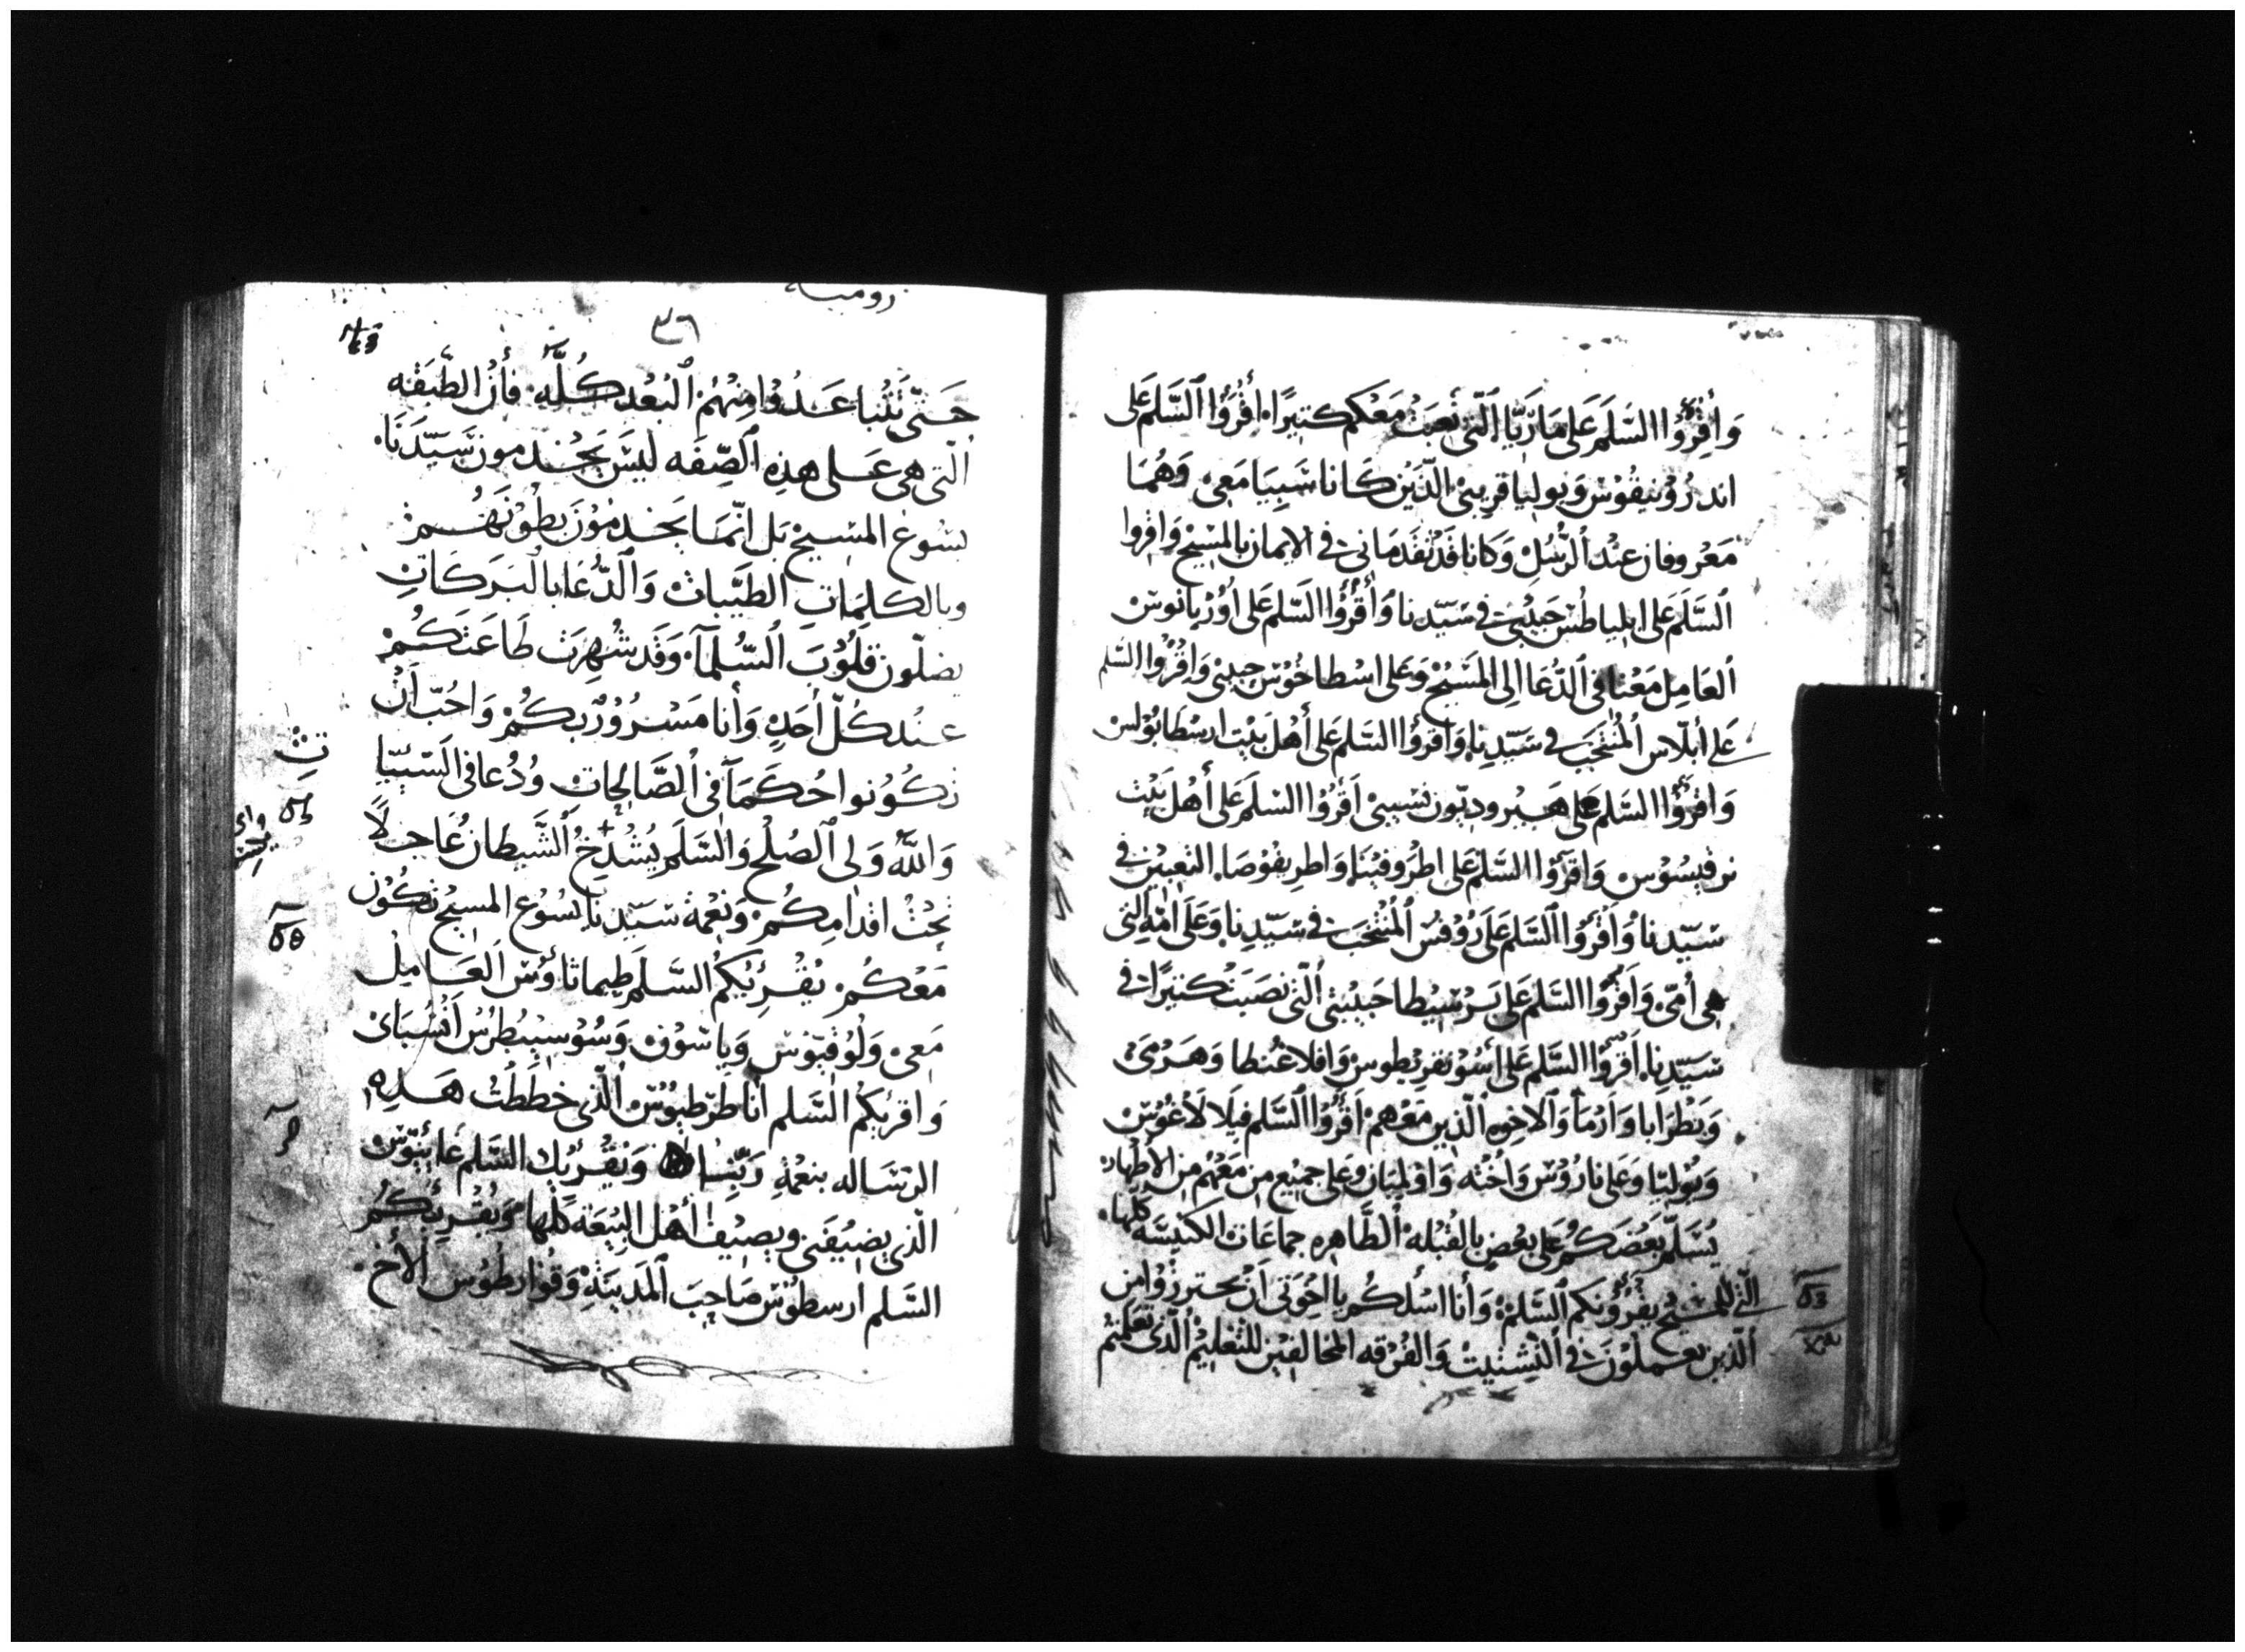 وَأَقْرِؤُا السَّلَمَ عَلَى مَارِيَّا الَّتِي تَعِبَتْ مَعَكُم كَثِيرًا، أَقْرُؤُا السَّلَمَ عَلَى
اندرُوْنِيقُوْس وَيُوليا قَرِيبيْ الَّذَيْن كَانا سَبِيَا مَعِيْ وَهُمَا
مَعْروفان عِنْد الرُّسُلِ وَكانا قَدْ تَقَدمَاني في الايمان بالمسِيْح وَاقروا
السَّلَمَ عَلى ابلياطُس حَبيْبي في سَيّدِنا وَأَقْرُؤُا السَّلم عَلى اوُرْيانوس
العَامِل مَعْنا في الدُّعَا الى المَسِيْحْ وَعَلى اسْطاخُوْس حبيبي وَاقْرُؤا السَّلم
عَلى أبلّاس المُنْتَخَبَ في سَيّدِنا وَاقرؤُا السَّلم عَلى أَهْل بَيْت ارسْطابُوْلس
وَاقرؤُا السَّلم عَلى هَيْروديّون نسِيبيْ أَقْرُؤُا السَّلَمَ عَلى أَهْل بَيْت
نرقيسُوْس وَاقرَؤُا السَّلم عَلى اطْرُوفيْنَا وَاطرِيفُوْصَا التعِبتين في
سَيّدنا وَأَقْرَؤُا السَّلم عَلَى رُوْفسْ المُنْتَخَبَ في سَيّدِنا وَعَلَى امّهِ الَّتي
هِي أُمّي وَاَقْرُؤُا السَّلم عَلَى بَرْسِيْطا حَبِيْبَتي الَّتي نصَبَتْ كثيرًا في
سَيّدِنا، اَقْرؤُا السَّلم عَلى أسُوْنقرِيْطوس وَافلاغُنطا وَهَرْمىْ
وَبَطْرَابا وَاَرْمَا وَالاخوه الَّذِين مَعْهم اَقْرُؤُا السَّلم فيلَا لَاغُوْس
وَيُوْليّا وَعَلى نارُوْس وَاخْتُه وَاوْلمبَان وَعَلى جَميْع مِن مَعَهُمْ مِن الاطْهار
يُسَلّم بَعْضَكُم عَلى بعْضٍ بالقُبْلَه الطَّاهِره جماعَات الكنيْسَه كلها
الّتي للمسيح يقْرُؤُنكم السَّلم وَأنا اسْلكُم يا اخْوَتي اَنْ تحترزوْا مِن
الَّذين يعملوْنَ في التّشتيت وَالفُرْقه المخالفين للتَّعْليْم الَّذي تعَلّمتم
روميـه
٣٦
حَتَّى تَتْبَاعَدُوْا مِنْهُمْ البُعْد كُلَّهِ فأنْ الطَّبقَه
التي هي عَلى هذِهِ الصِّفَه ليْسَ يَخْدمونَ سَيّدَنَا
يسُوع المسِيح بَل انّمَا يَخدمُوْن بطُوْنَهُمْ
وبالكلمَات الطَّيِّبات وَالدُّعَا بالبَرَكَات
يضلّون قلُوْبَ السُّلمآ وَقَد شُهِرَت طَاعَتكُمْ
عنْد كُلّ أحَدٍ وَأنا مَسْرُوْرٌ بكُمْ وَاحُبّ اَنْ
تكُوُنوا حُكَمَآ في الصَّالحِات وُدُعا في السّيّئآ
وَاللهُ وَلي الصُلْح وَالسَّلَمِ يُشْدِخُ الشَّيطان عَاجلًا
تَحْتْ اقدامِكُمْ وَنِعْمة سَيّدِنا يسُوْع المسيح تَكُوْن
مَعْكُمْ يُقْرِئُكُمُ السَّلَم طيماثاؤُس العَامِلْ
مَعِيْ وَلُوْقيّوْس وَياسُوْن وَسُوْسبيْطرُسْ اَنْسُبَائي
وَاقرِيكُمْ السَّلم أنا طَرطيُوْس الَّذي خطَطتْ هَذِهِ
الرّسَاله بنعْمةِ رَبِّنا وَيُقْرِيك السَّلم غَايُيّوْس
الّذي يضيْفَني ويضِيْف أَهْل البِيْعَة كلّها وَيُقْرِئُكُمُ
السَّلم ارسطُوْس صَاحِبَ المَدِيْنَة وَقُوْارطُوْس الأخ